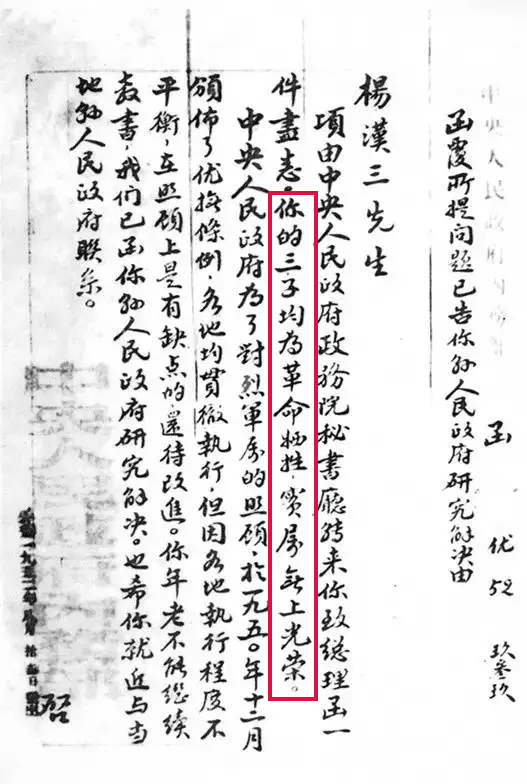 中央人民政府内務部
函 优 52 玖叁玖
函覆所提問題已告你县人民政府研究解决由
楊漢三先生
項由中央人民政府政務院秘書廳转来你致總理函一
件盡志。你的三子均為革命牺牲，實属無上光荣。
中央人民政府為了對烈軍属的照顾，於一九五〇年十二月
頒佈了优撫條例，各地均貫徹執行，但因各地執行程度不
平衡，在照顾上是有缺点的，還待改進。你年老不能继续
教書，我们已函你县人民政府研究解决。也希你就近与当
地县人民政府联系。
啓